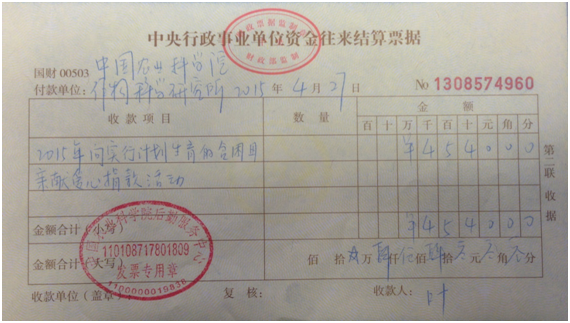 中央行政事业单位资金往来结算票据
国财 00503 中国农业科学院
付款单位: 作物科学研究所 2015 年 4 月 27 日 No 1308574960
收款项目 数量 金额
百 十 万 千 百 十 元 角 分
2015年向实行计划生育的贫困母 ¥ 4 5 4 0 0 0
亲献爱心捐款活动
金额合计(小写) ¥ 4 5 4 0 0 0
金额合计(大写) 佰 拾 万 肆 仟 伍 佰 肆 拾 元 角 分
收款单位(盖章): 复核: 收款人: 叶
第二联 收据
财政部监制
农业科学院后勤服务中心
110108717801809
发票专用章